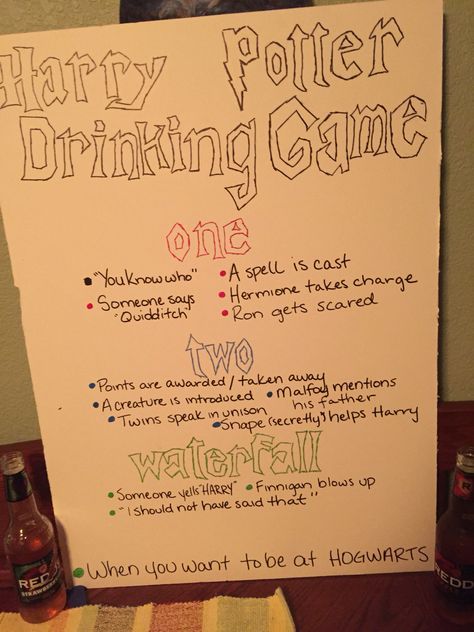 Harry Potter
Drinking Game
one
"You know who"
A spell is cast
Someone says
"Quidditch"
Hermione takes charge
Ron gets scared
two
Points are awarded/taken away
A creature is introduced
Malfoy mentions
his father
Twins speak in unison
Snape (secretly) helps Harry
waterfall
Someone yells "HARRY"
Finnigan blows up
"I should not have said that"
When you want to be at HOGWARTS
REDD'S
STRAWBERRY
REDD